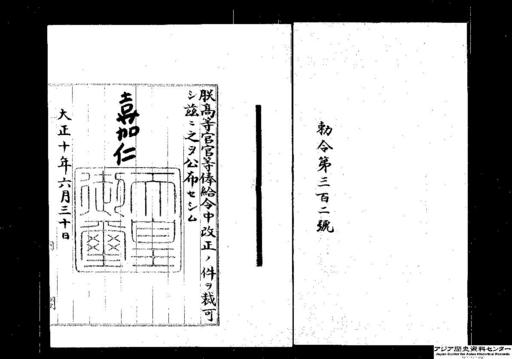 勅令第三百二號
朕高等官官等俸給令中改正ノ件ヲ裁可
シ茲ニ之ヲ公布セシム
嘉仁
天皇御璽
大正十年六月三十日
アジア歴史資料センター
Japan Center for Asian Historical Records